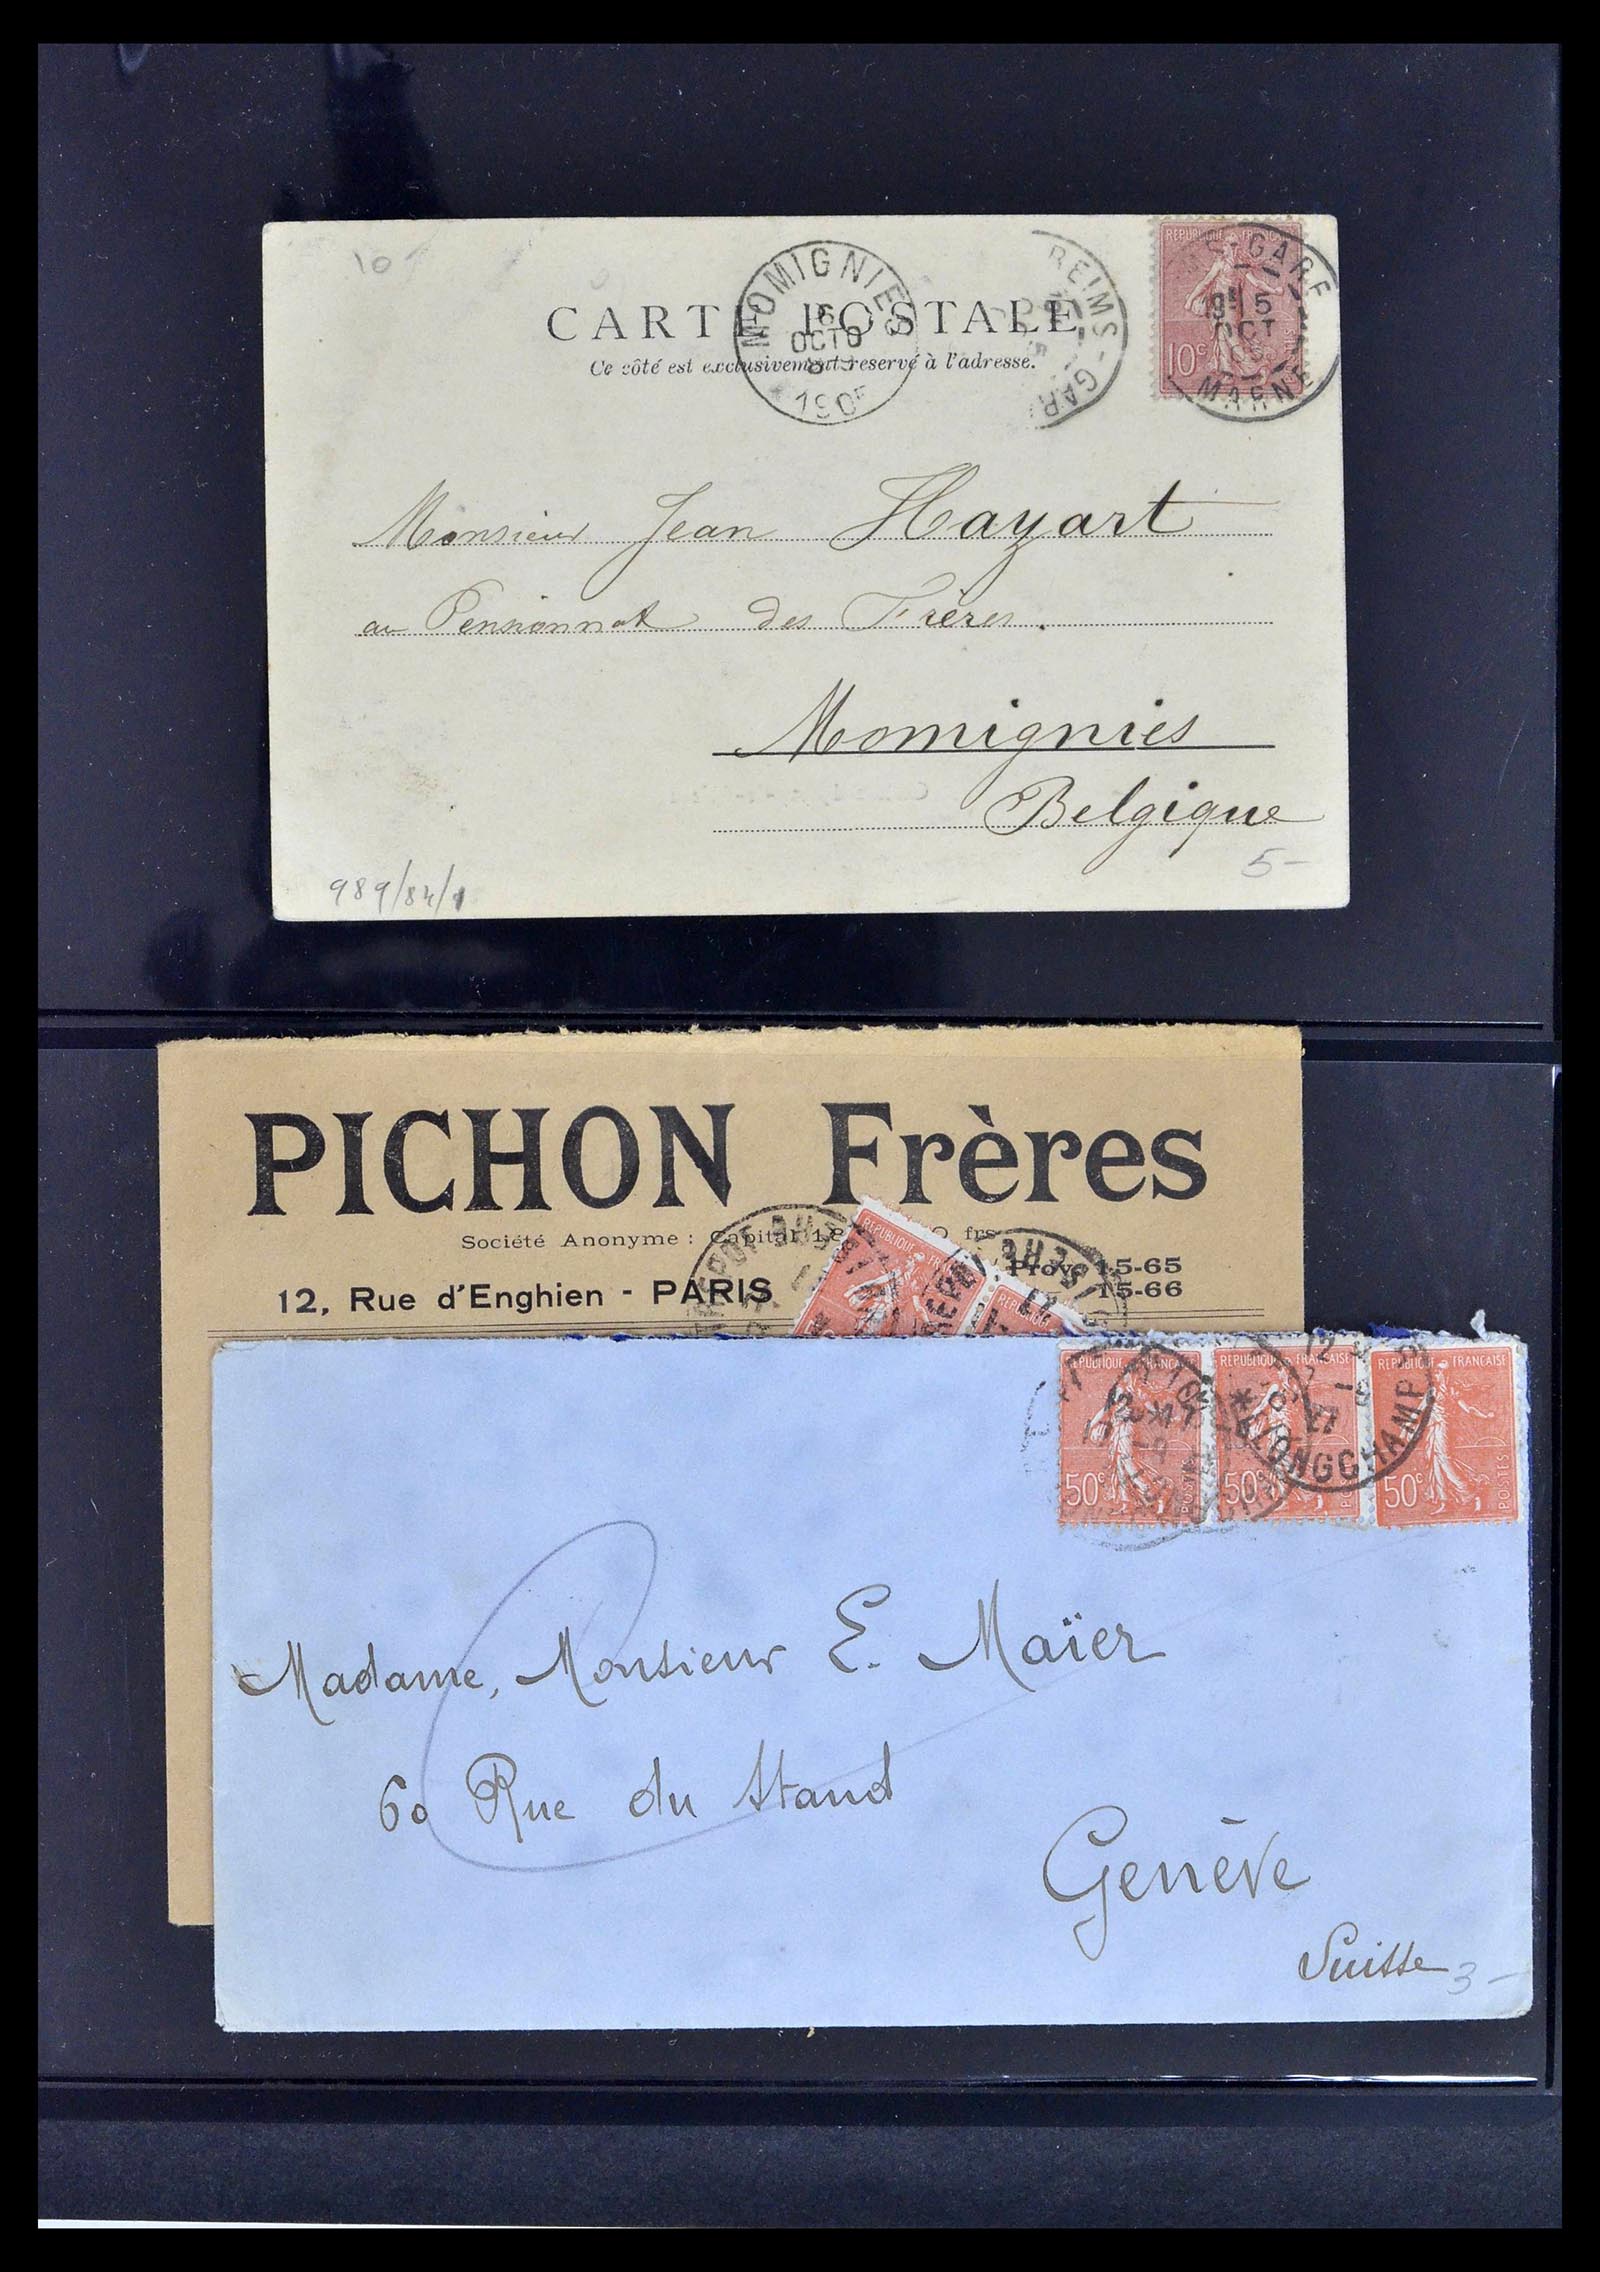 10
CARTE POSTALE
Ce côté est exclusivement reservé à l'adresse.
MOMIGNIES
6
OCTO
REIMS-GAR
REPUBLIQUE FRANÇAISE
10c
GARE
5
OCT
MARNE
Monsieur Jean Hayart
au Pensionnat des Frères.
Momignies
Belgique
5-
989/84/1
PICHON Frères
Société Anonyme : Capital 1.8
O frs
12, Rue d'Enghien - PARIS
Prov. 15-65
15-66
REPUBLIQUE
REPUBLIQUE FRANÇAISE
REPUBLIQUE FRANÇAISE
REPUBLIQUE FRANÇAISE
50c POSTES
50c
50c POSTES
LONGCHAMP
Madame, Monsieur E. Maïer
60 Rue du Stand
Genève
Suisse
3-